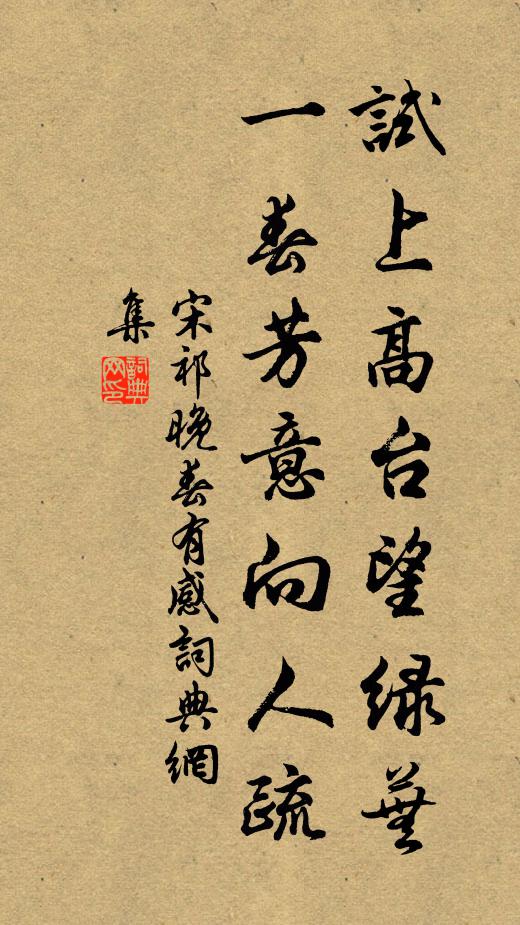 試上高台望緑蕪
一春芳意向人疏
宋祁晚春有感詞典網
集
詞典网印